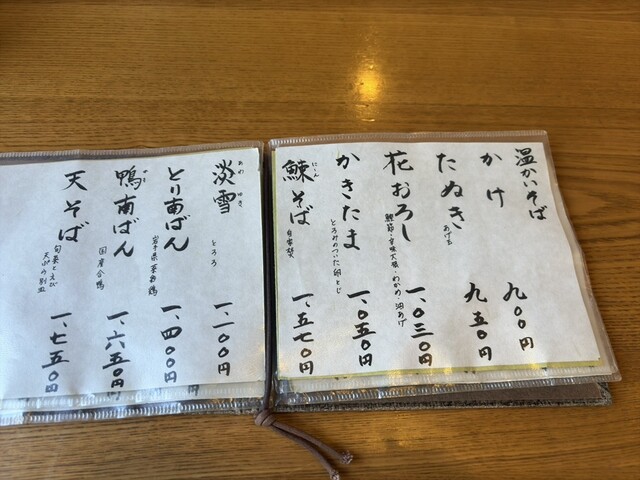 温かいそば
かけ 九〇〇円
たぬき あげ玉 九五〇円
花おろし 鰹節・辛味大根・わかめ・油あげ 一、〇三〇円
かきたま とろみのついた卵とじ 一、〇五〇円
鰊そば にしん 自家製 一、五七〇円
淡雪 あわ ゆき とろろ 一、一〇〇円
とり南ばん 岩手県菜彩鶏 一、四〇〇円
鴨南ばん かも 国産合鴨 一、六五〇円
天そば 旬菜とえび 天ぷら別皿 一、七五〇円